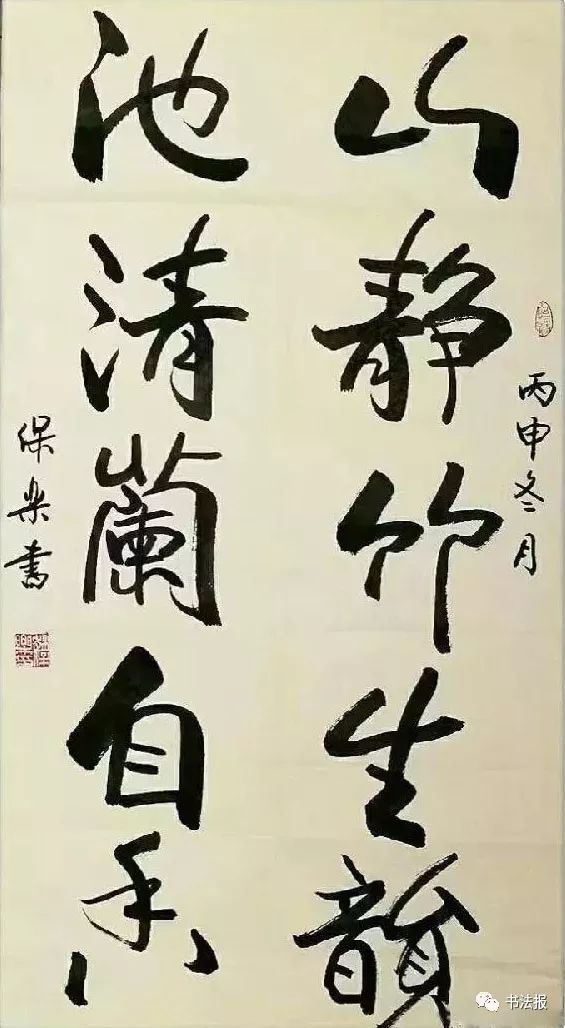 丙申冬月
山静竹生韻
池清蘭自香
保樂書
书法报